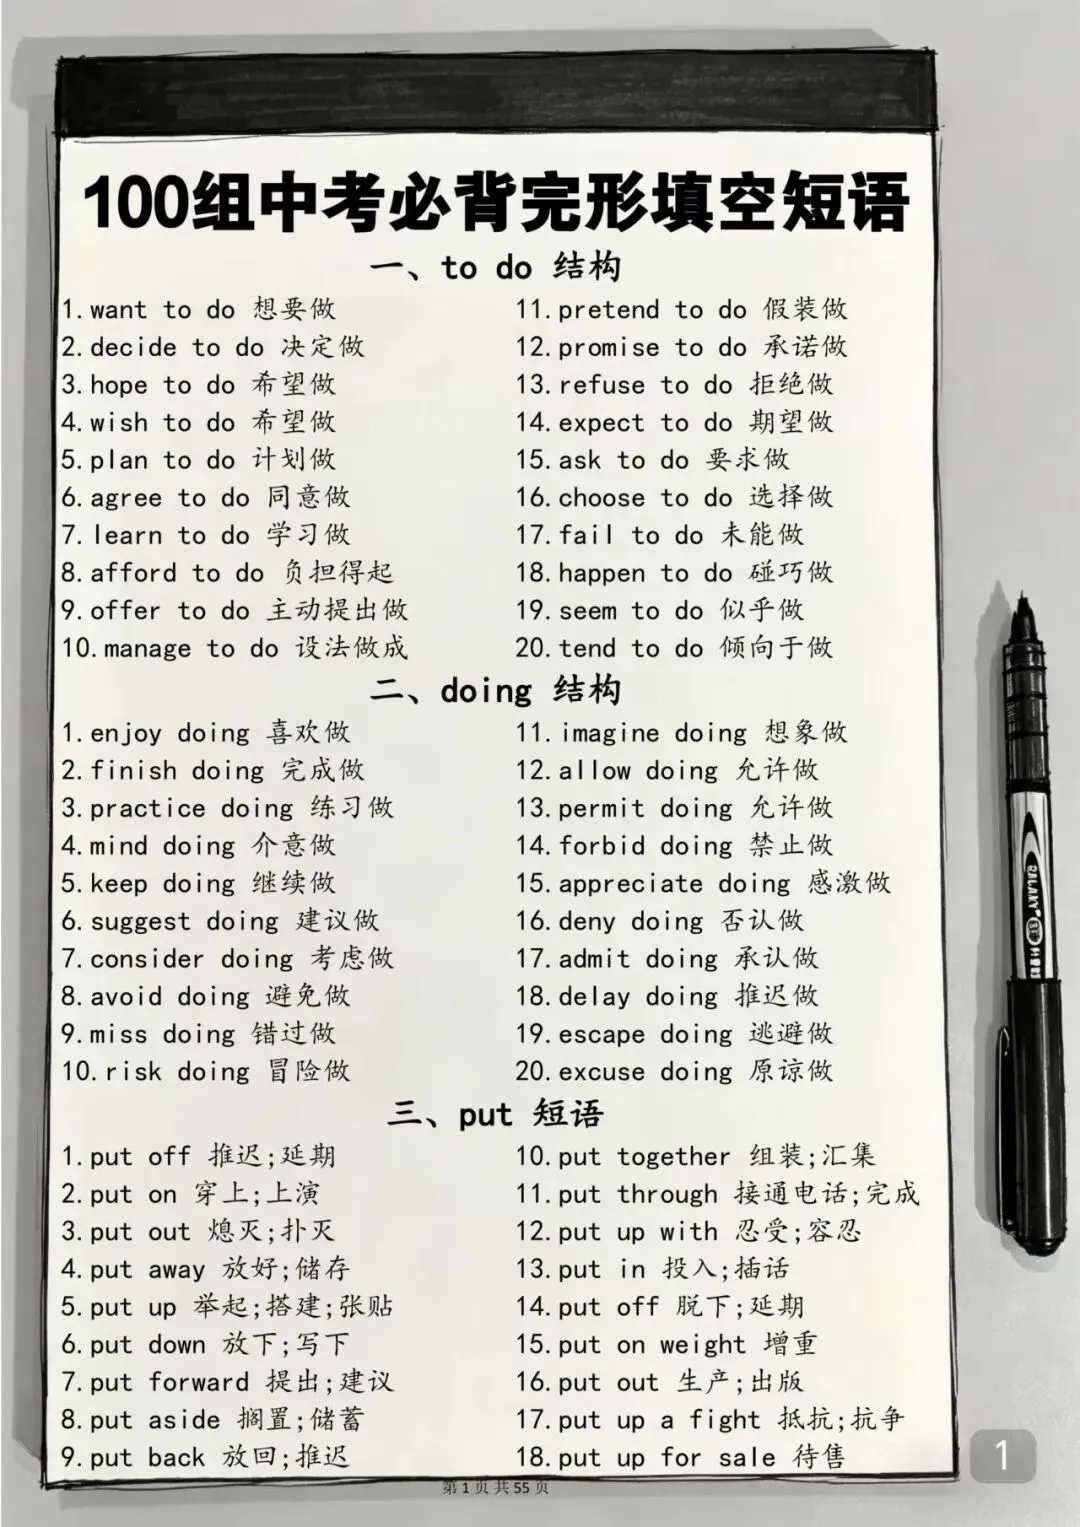 100组中考必背完形填空短语
一、to do 结构
1.want to do 想要做
2.decide to do 决定做
3.hope to do 希望做
4.wish to do 希望做
5.plan to do 计划做
6.agree to do 同意做
7.learn to do 学习做
8.afford to do 负担得起
9.offer to do 主动提出做
10.manage to do 设法做成
11.pretend to do 假装做
12.promise to do 承诺做
13.refuse to do 拒绝做
14.expect to do 期望做
15.ask to do 要求做
16.choose to do 选择做
17.fail to do 未能做
18.happen to do 碰巧做
19.seem to do 似乎做
20.tend to do 倾向于做
二、doing 结构
1.enjoy doing 喜欢做
2.finish doing 完成做
3.practice doing 练习做
4.mind doing 介意做
5.keep doing 继续做
6.suggest doing 建议做
7.consider doing 考虑做
8.avoid doing 避免做
9.miss doing 错过做
10.risk doing 冒险做
11.imagine doing 想象做
12.allow doing 允许做
13.permit doing 允许做
14.forbid doing 禁止做
15.appreciate doing 感激做
16.deny doing 否认做
17.admit doing 承认做
18.delay doing 推迟做
19.escape doing 逃避做
20.excuse doing 原谅做
三、put 短语
1.put off 推迟;延期
2.put on 穿上;上演
3.put out 熄灭;扑灭
4.put away 放好;储存
5.put up 举起;搭建;张贴
6.put down 放下;写下
7.put forward 提出;建议
8.put aside 搁置;储蓄
9.put back 放回;推迟
10.put together 组装;汇集
11.put through 接通电话;完成
12.put up with 忍受;容忍
13.put in 投入;插话
14.put off 脱下;延期
15.put on weight 增重
16.put out 生产;出版
17.put up a fight 抵抗;抗争
18.put up for sale 待售
第 1 页 共 55 页
1